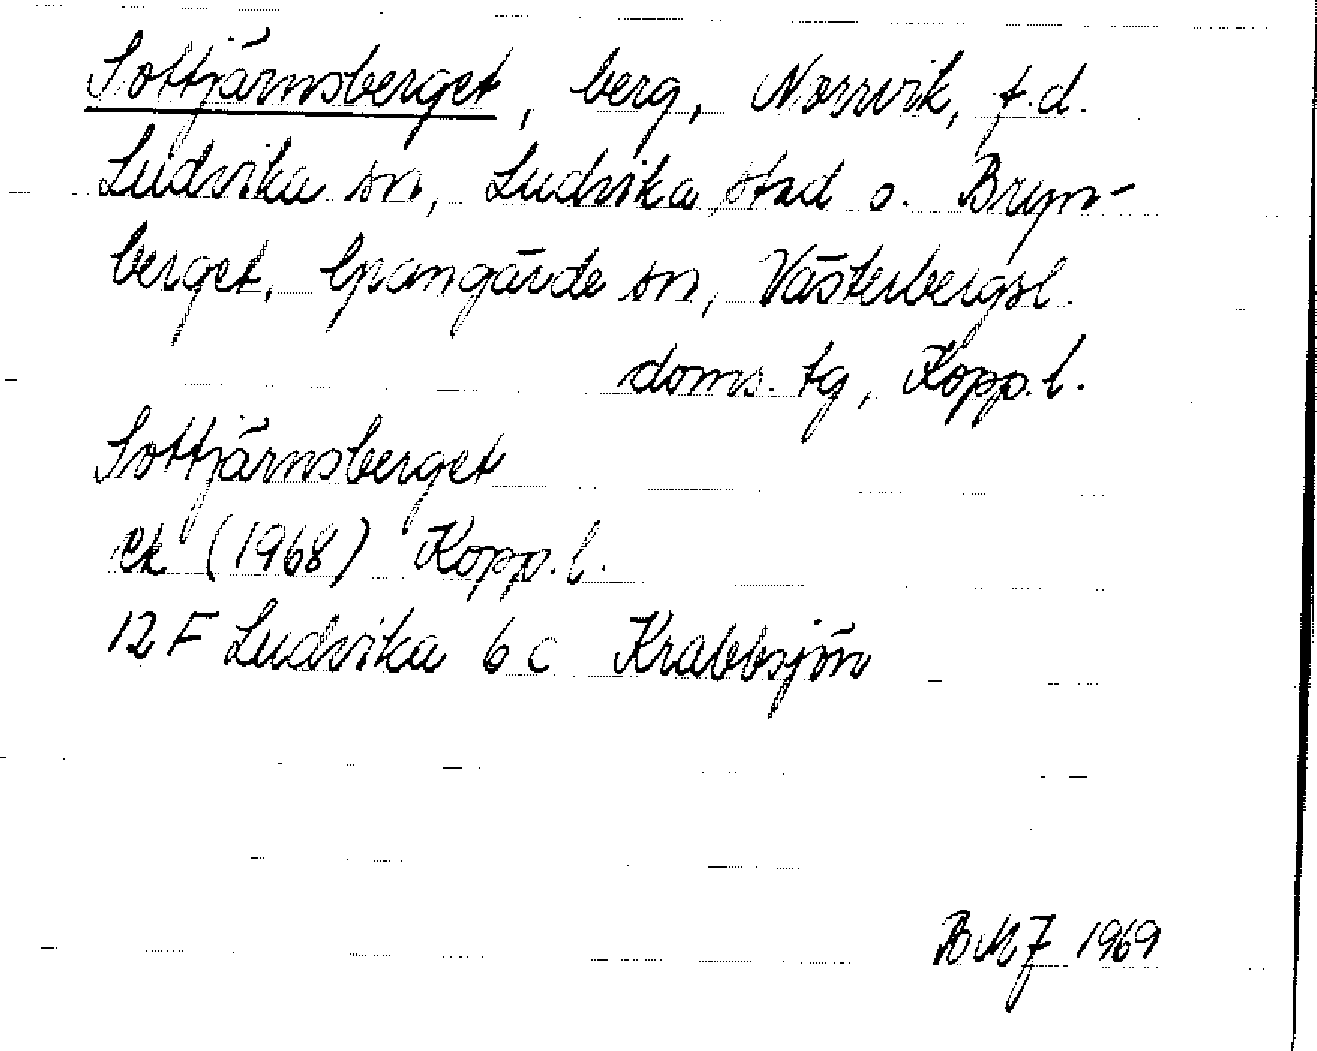 Sottjärnsberget, berg, Norrvik, f.d.
Ludvika sn, Ludvika stad o. Bryn-
berget, Grangärde sn, Västerbergsl.
doms. tg, Kopp. l.
Sottjärnsberget
ek (1968) Kopp. l.
12 F Ludvika 6 c Krabbsjön
BMJ 1969